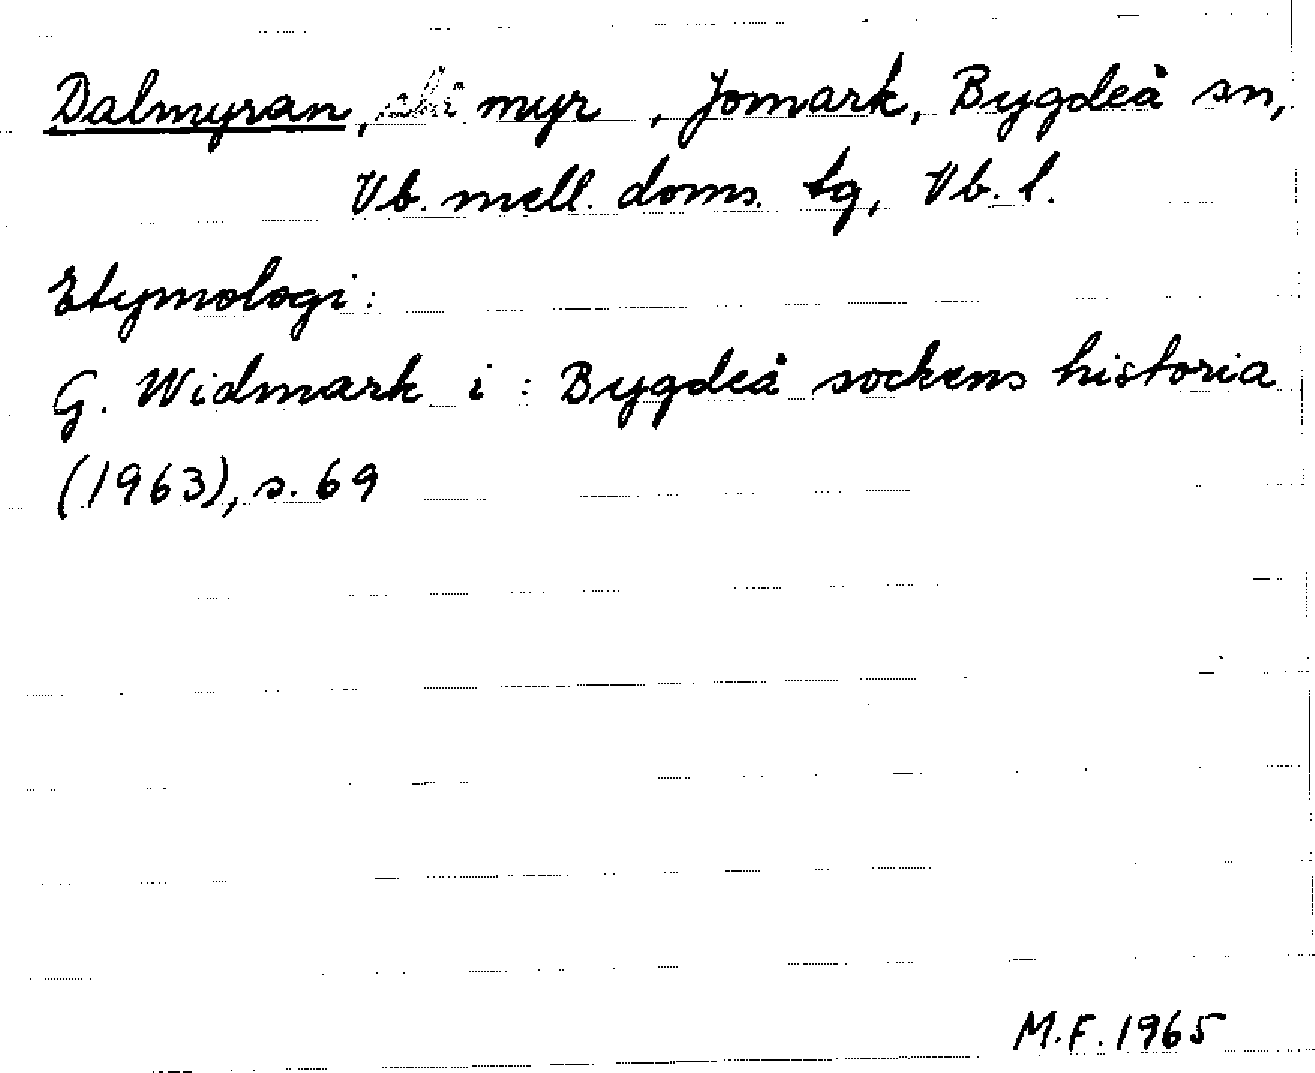 Dalmyran, myr, Jomark, Bygdeå sn,
Vb. mell. doms. tg, Vb. l.
Etymologi:
G. Widmark i: Bygdeå sockens historia
(1963), s. 69
M.F. 1965